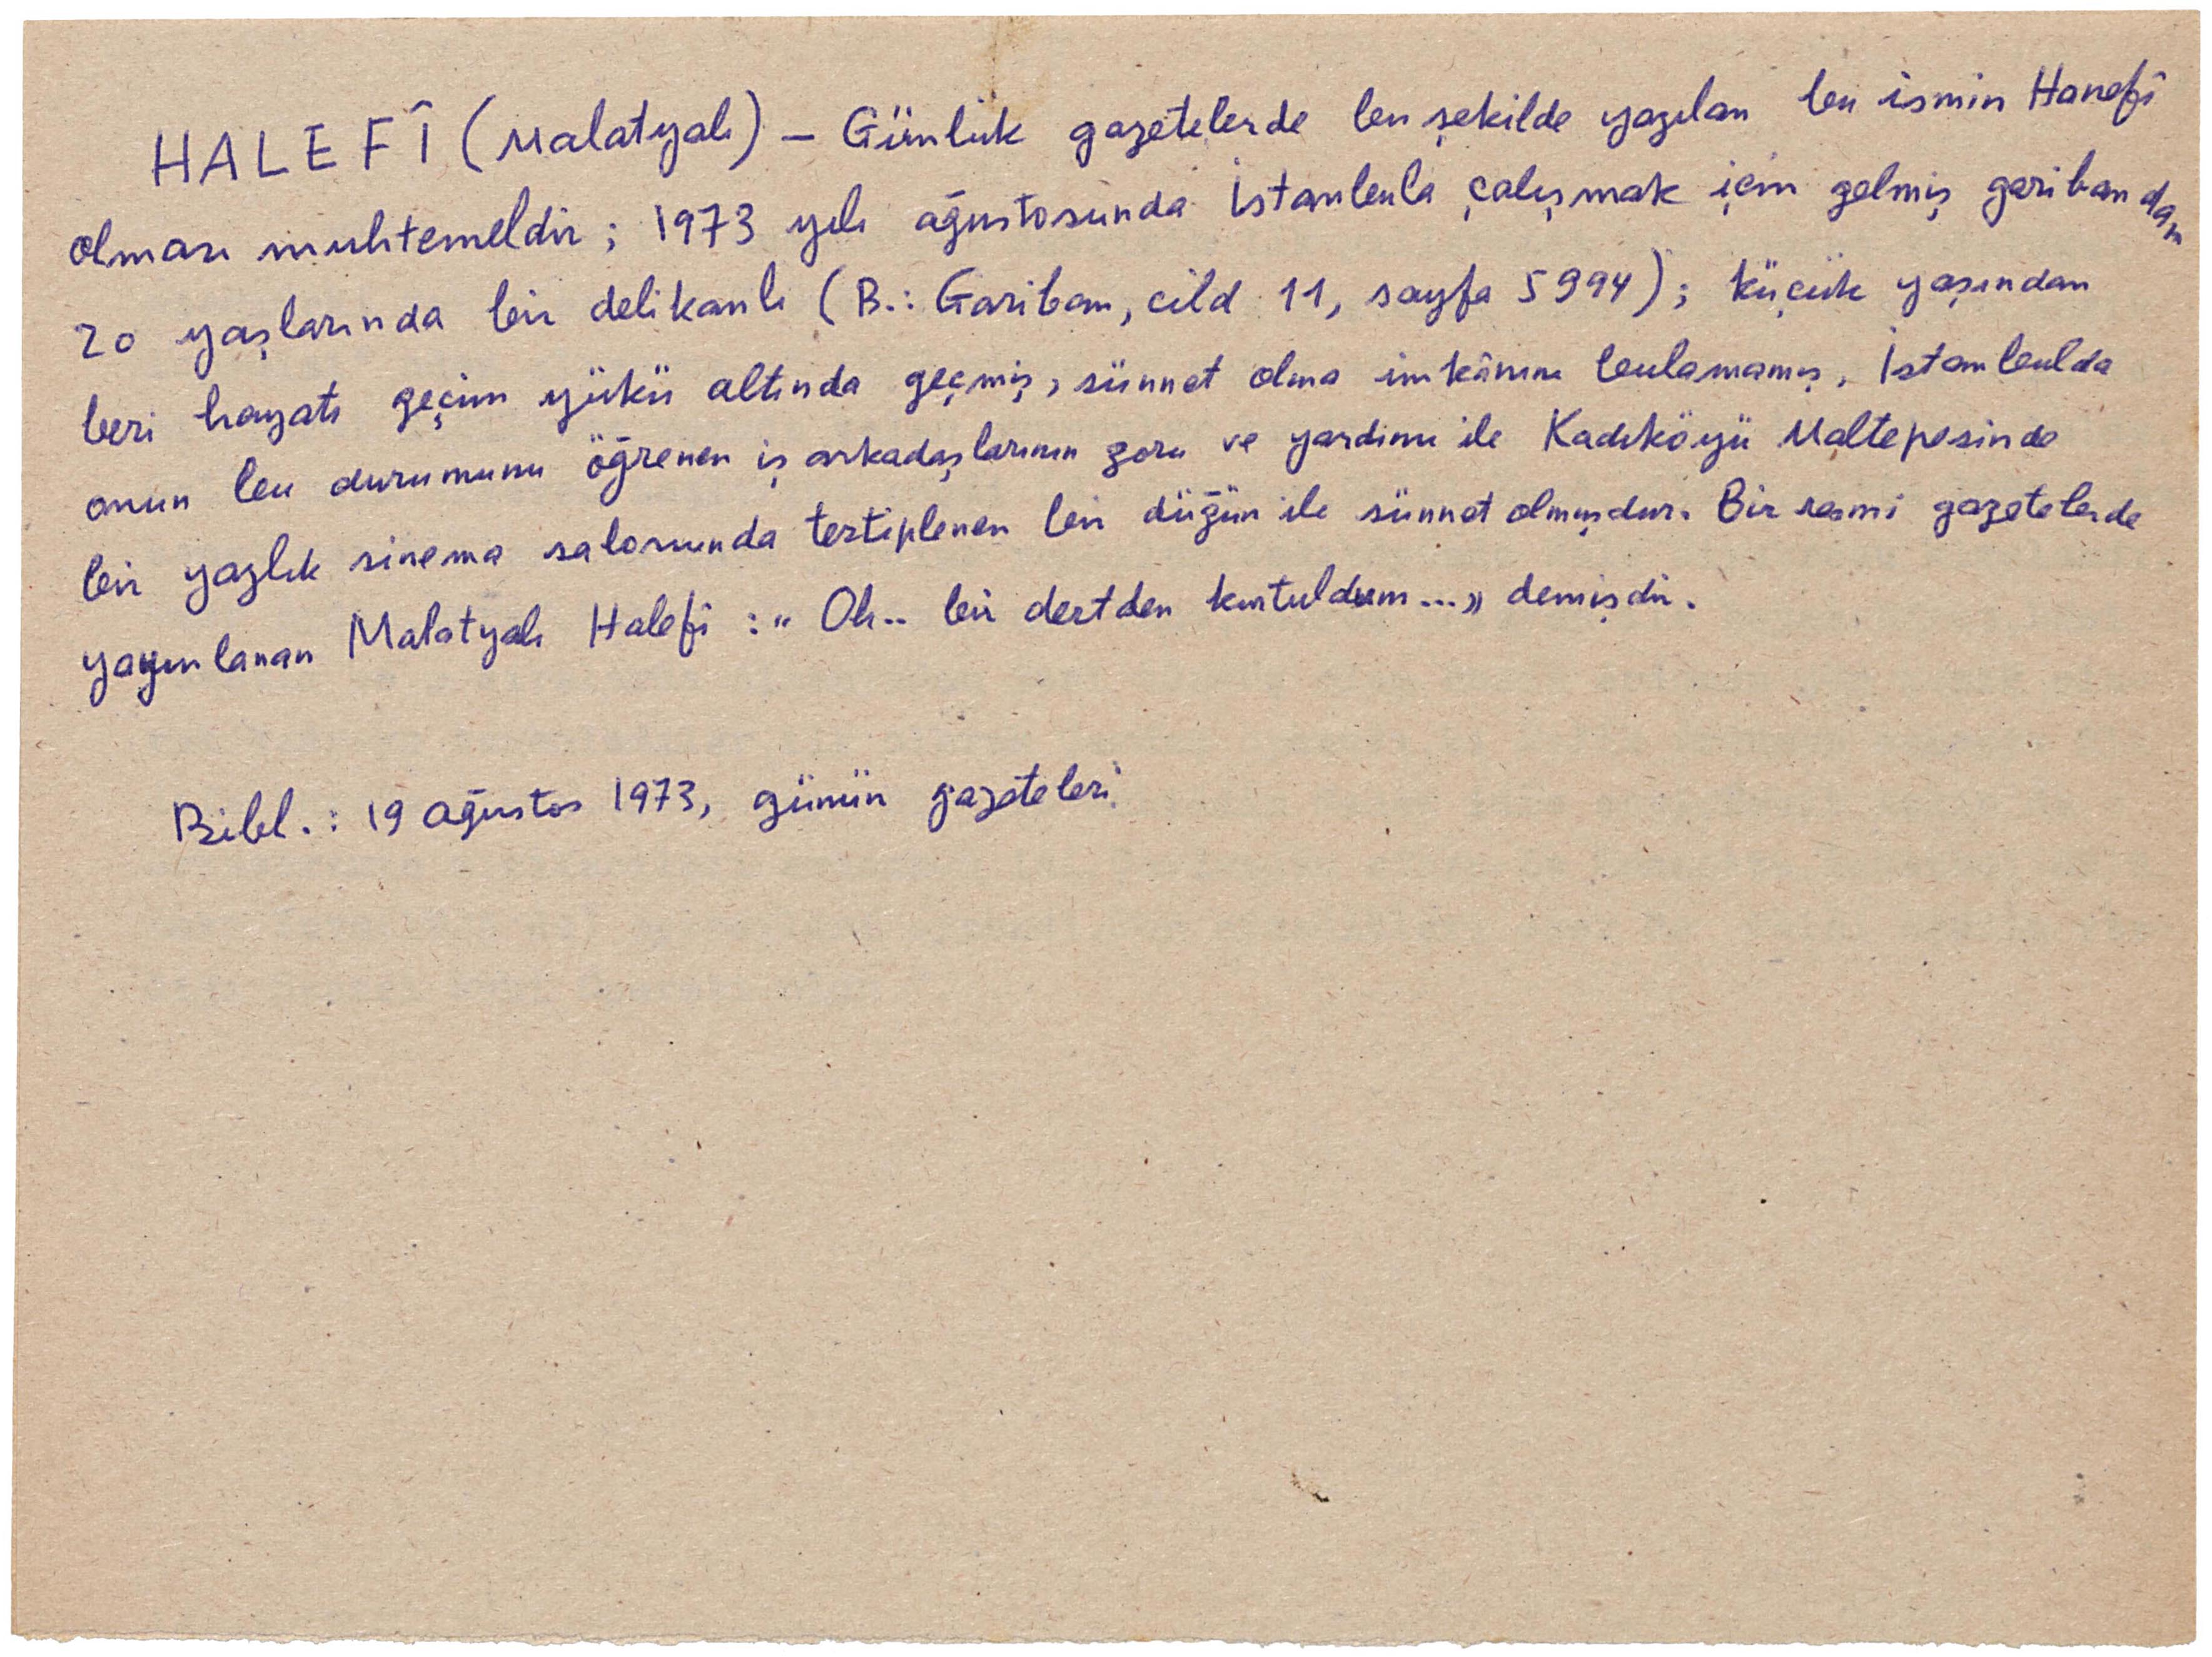 HALEFÎ (Malatyalı) — Günlük gazetelerde bu şekilde yazılan bu ismin Hanefî
olması muhtemeldir; 1973 yılı ağustosunda İstanbula çalışmak için gelmiş garibandan
20 yaşlarında bir delikanlı (B.: Gariban, cild 11, sayfa 5994); küçük yaşından
beri hayatı geçim yükü altında geçmiş, sünnet olma imkânını bulamamış, İstanbulda
onun bu durumunu öğrenen iş arkadaşlarının zoru ve yardımı ile Kadıköyü Maltepesinde
bir yazlık sinema salonunda tertiplenen bir düğün ile sünnet olmuşdur. Bir resmi gazetelerde
yayınlanan Malatyalı Halefî : "Oh.. bir dertden kurtuldum..." demişdir.
Bibl.: 19 ağustos 1973, günün gazeteleri